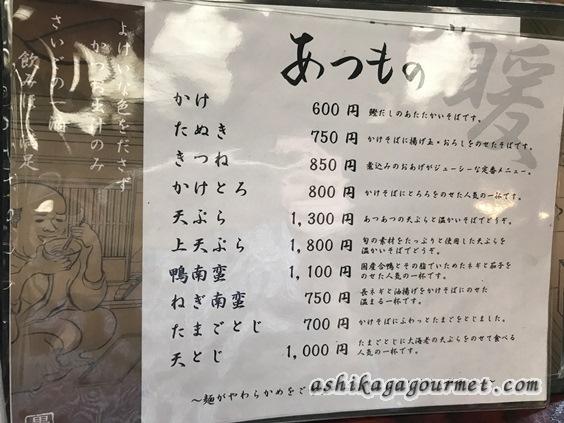 あつもの
暖
かけ 600円 鰹だしのあたたかいそばです。
たぬき 750円 かけそばに揚げ玉・おろしをのせたそばです。
きつね 850円 煮込みのおあげがジューシーな定番メニュー。
かけとろ 800円 かけそばにとろろをのせた人気の一杯です。
天ぷら 1,300円 あつあつの天ぷらと温かいそばでどうぞ。
上天ぷら 1,800円 旬の素材をたっぷりと使用した天ぷらを
温かいそばでどうぞ。
鴨南蛮 1,100円 国産合鴨とその脂でいためたネギと茄子を
のせた人気の一杯です。
ねぎ南蛮 750円 長ネギと油揚げをかけそばにのせた
温まる一杯です。
たまごとじ 700円 かけそばにふわっとたまごをとじました。
天とじ 1,000円 たまごとじに大海老の天ぷらをのせて食べる
人気の一杯です。
〜麺がやわらかめをご
ashikagagourmet.com